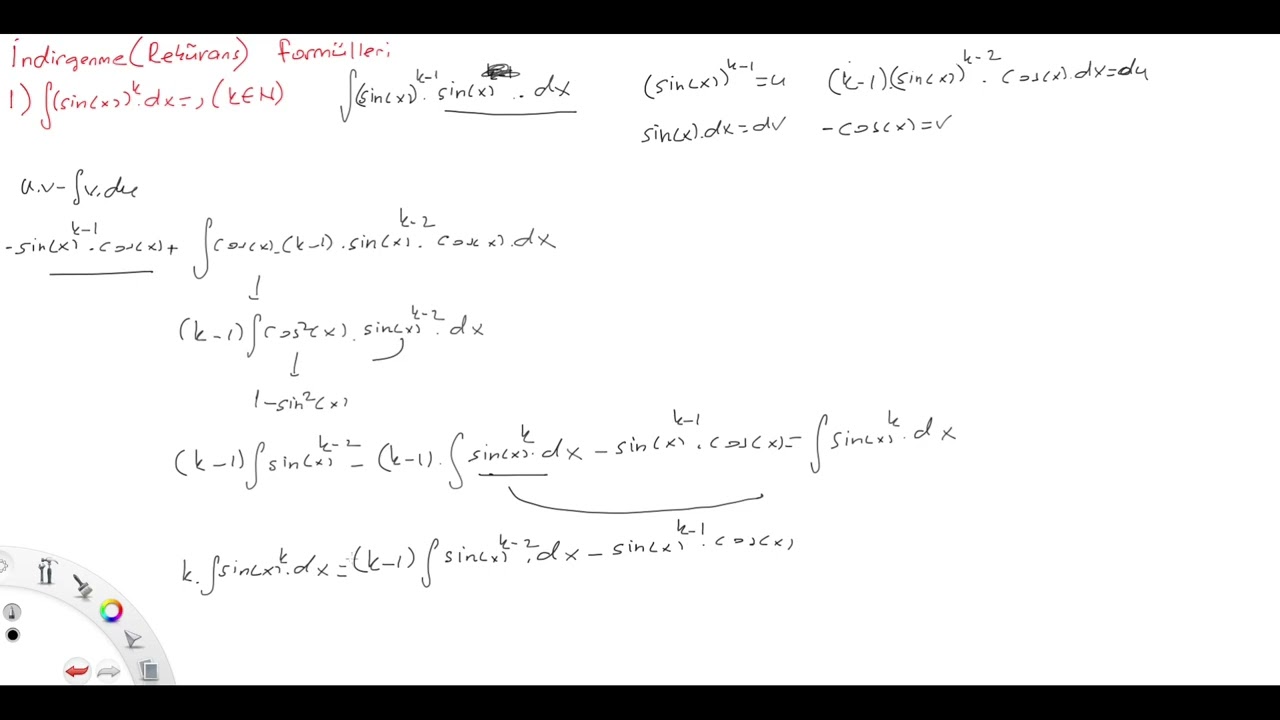 İndirgenme(Rekürans) formülleri
1) ∫(sin(x))^k.dx=, (k∈N) ∫(sin(x))^k-1.sin(x) . dx (sin(x))^k-1=u (k-1).(sin(x))^k-2.cos(x).dx=du
sin(x).dx=dv -cos(x)=v
u.v-∫v.du
-sin(x)^k-1.cos(x)+ ∫cos(x).(k-1).sin(x)^k-2.cos(x).dx
(k-1)∫cos²(x).sin(x)^k-2.dx
1-sin²(x)
(k-1)∫sin(x)^k-2 - (k-1).∫sin(x)^k.dx - sin(x)^k-1.cos(x)= ∫sin(x)^k.dx
k.∫sin(x)^k.dx=(k-1)∫sin(x)^k-2.dx - sin(x)^k-1.cos(x)